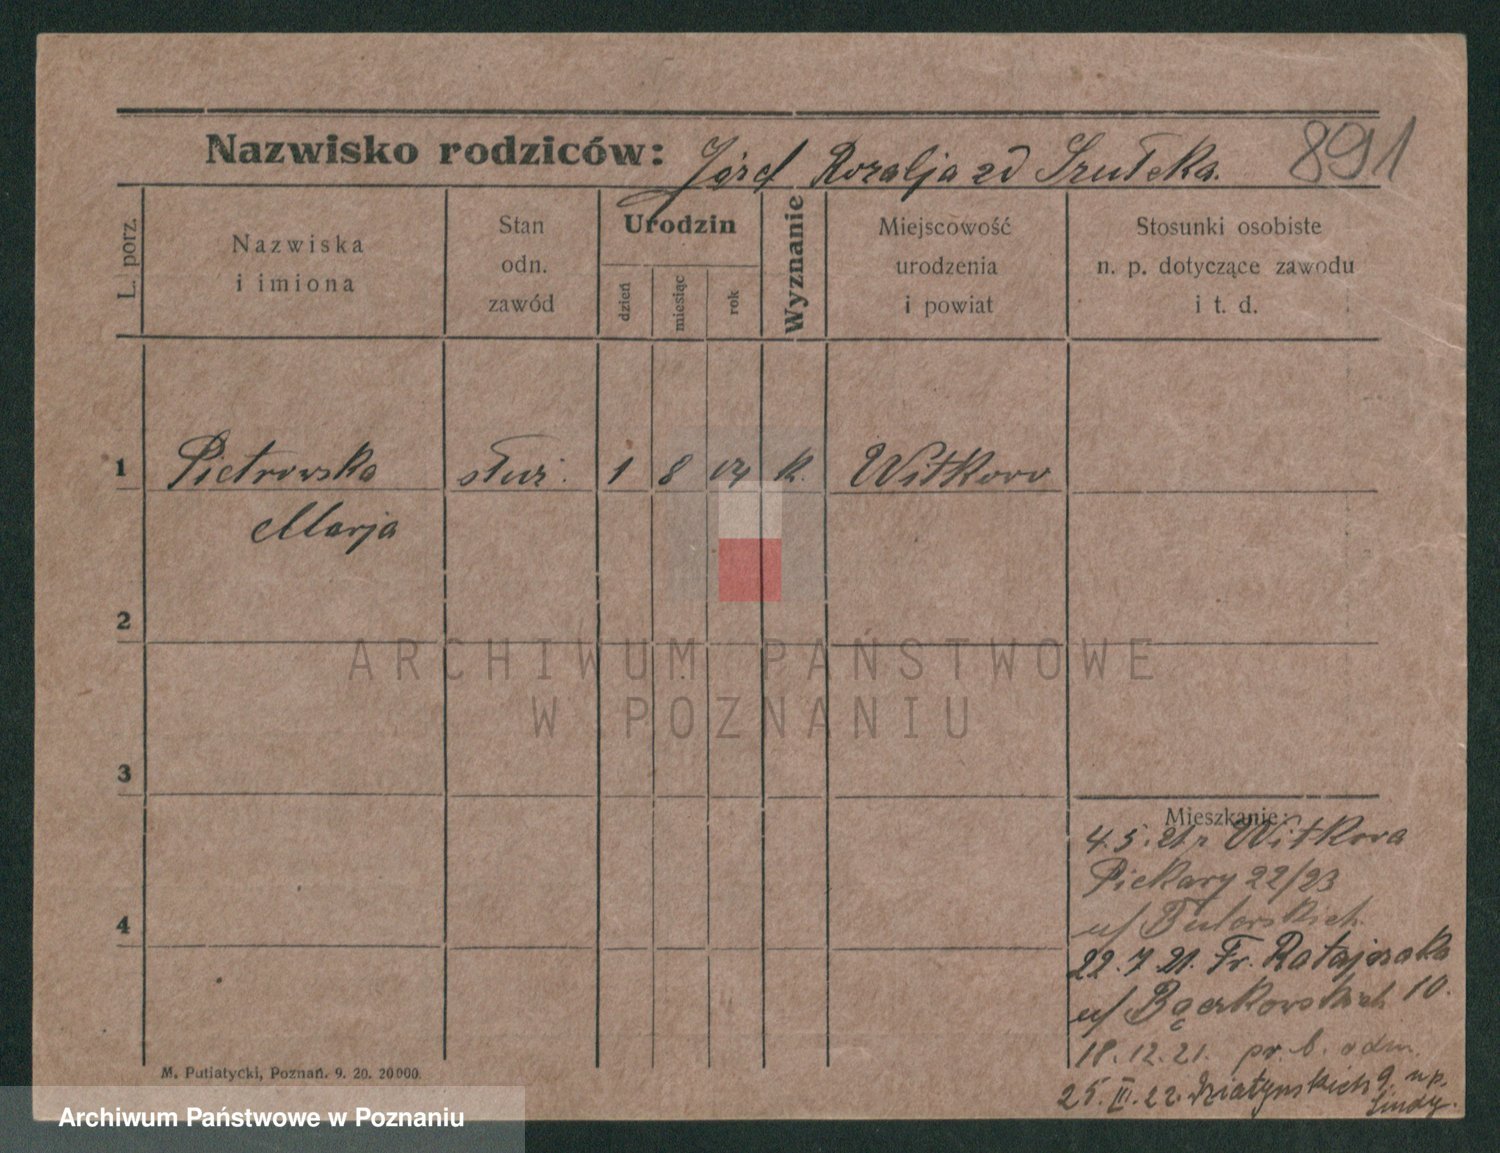 Nazwisko rodziców: Józef Rozalja zd Szułcka. 891
L. porz.
Nazwiska
i imiona
Stan
odn.
zawód
Urodzin
dzień
miesiąc
rok
Wyznanie
Miejscowość
urodzenia
i powiat
Stosunki osobiste
n. p. dotyczące zawodu
i t. d.
1 Pietrowska służ. 1 8 04 k. Witkowo
Marja
2
3
4
Mieszkanie:
4. 5. 21 z Witkowa
Piekary 22/23
22. 7. 21. Fr. Ratajczaka
10.
18. 12. 21. pr. b. adm.
25. III. 22. Działyńskich 9. np.
M. Putiatycki, Poznań. 9. 20. 20000.
ARCHIWUM PAŃSTWOWE
W POZNANIU
Archiwum Państwowe w Poznaniu